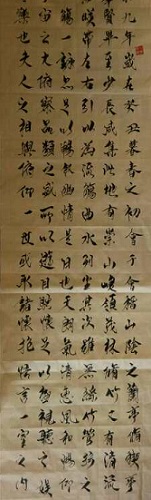 九年歲在癸丑暮春之初會于會稽山陰之蘭亭脩稧事
畢至少長咸集此地有崇山峻領茂林脩竹又有清流
暎帶左右引以為流觴曲水列坐其次雖無絲竹管弦之
觴一詠亦足以暢敘幽情是日也天朗氣清惠風和暢仰
之大俯察品類之盛所以遊目騁懷足以極視聽之娛
樂也夫人之相與俯仰一世或取諸懷抱悟言一室之內